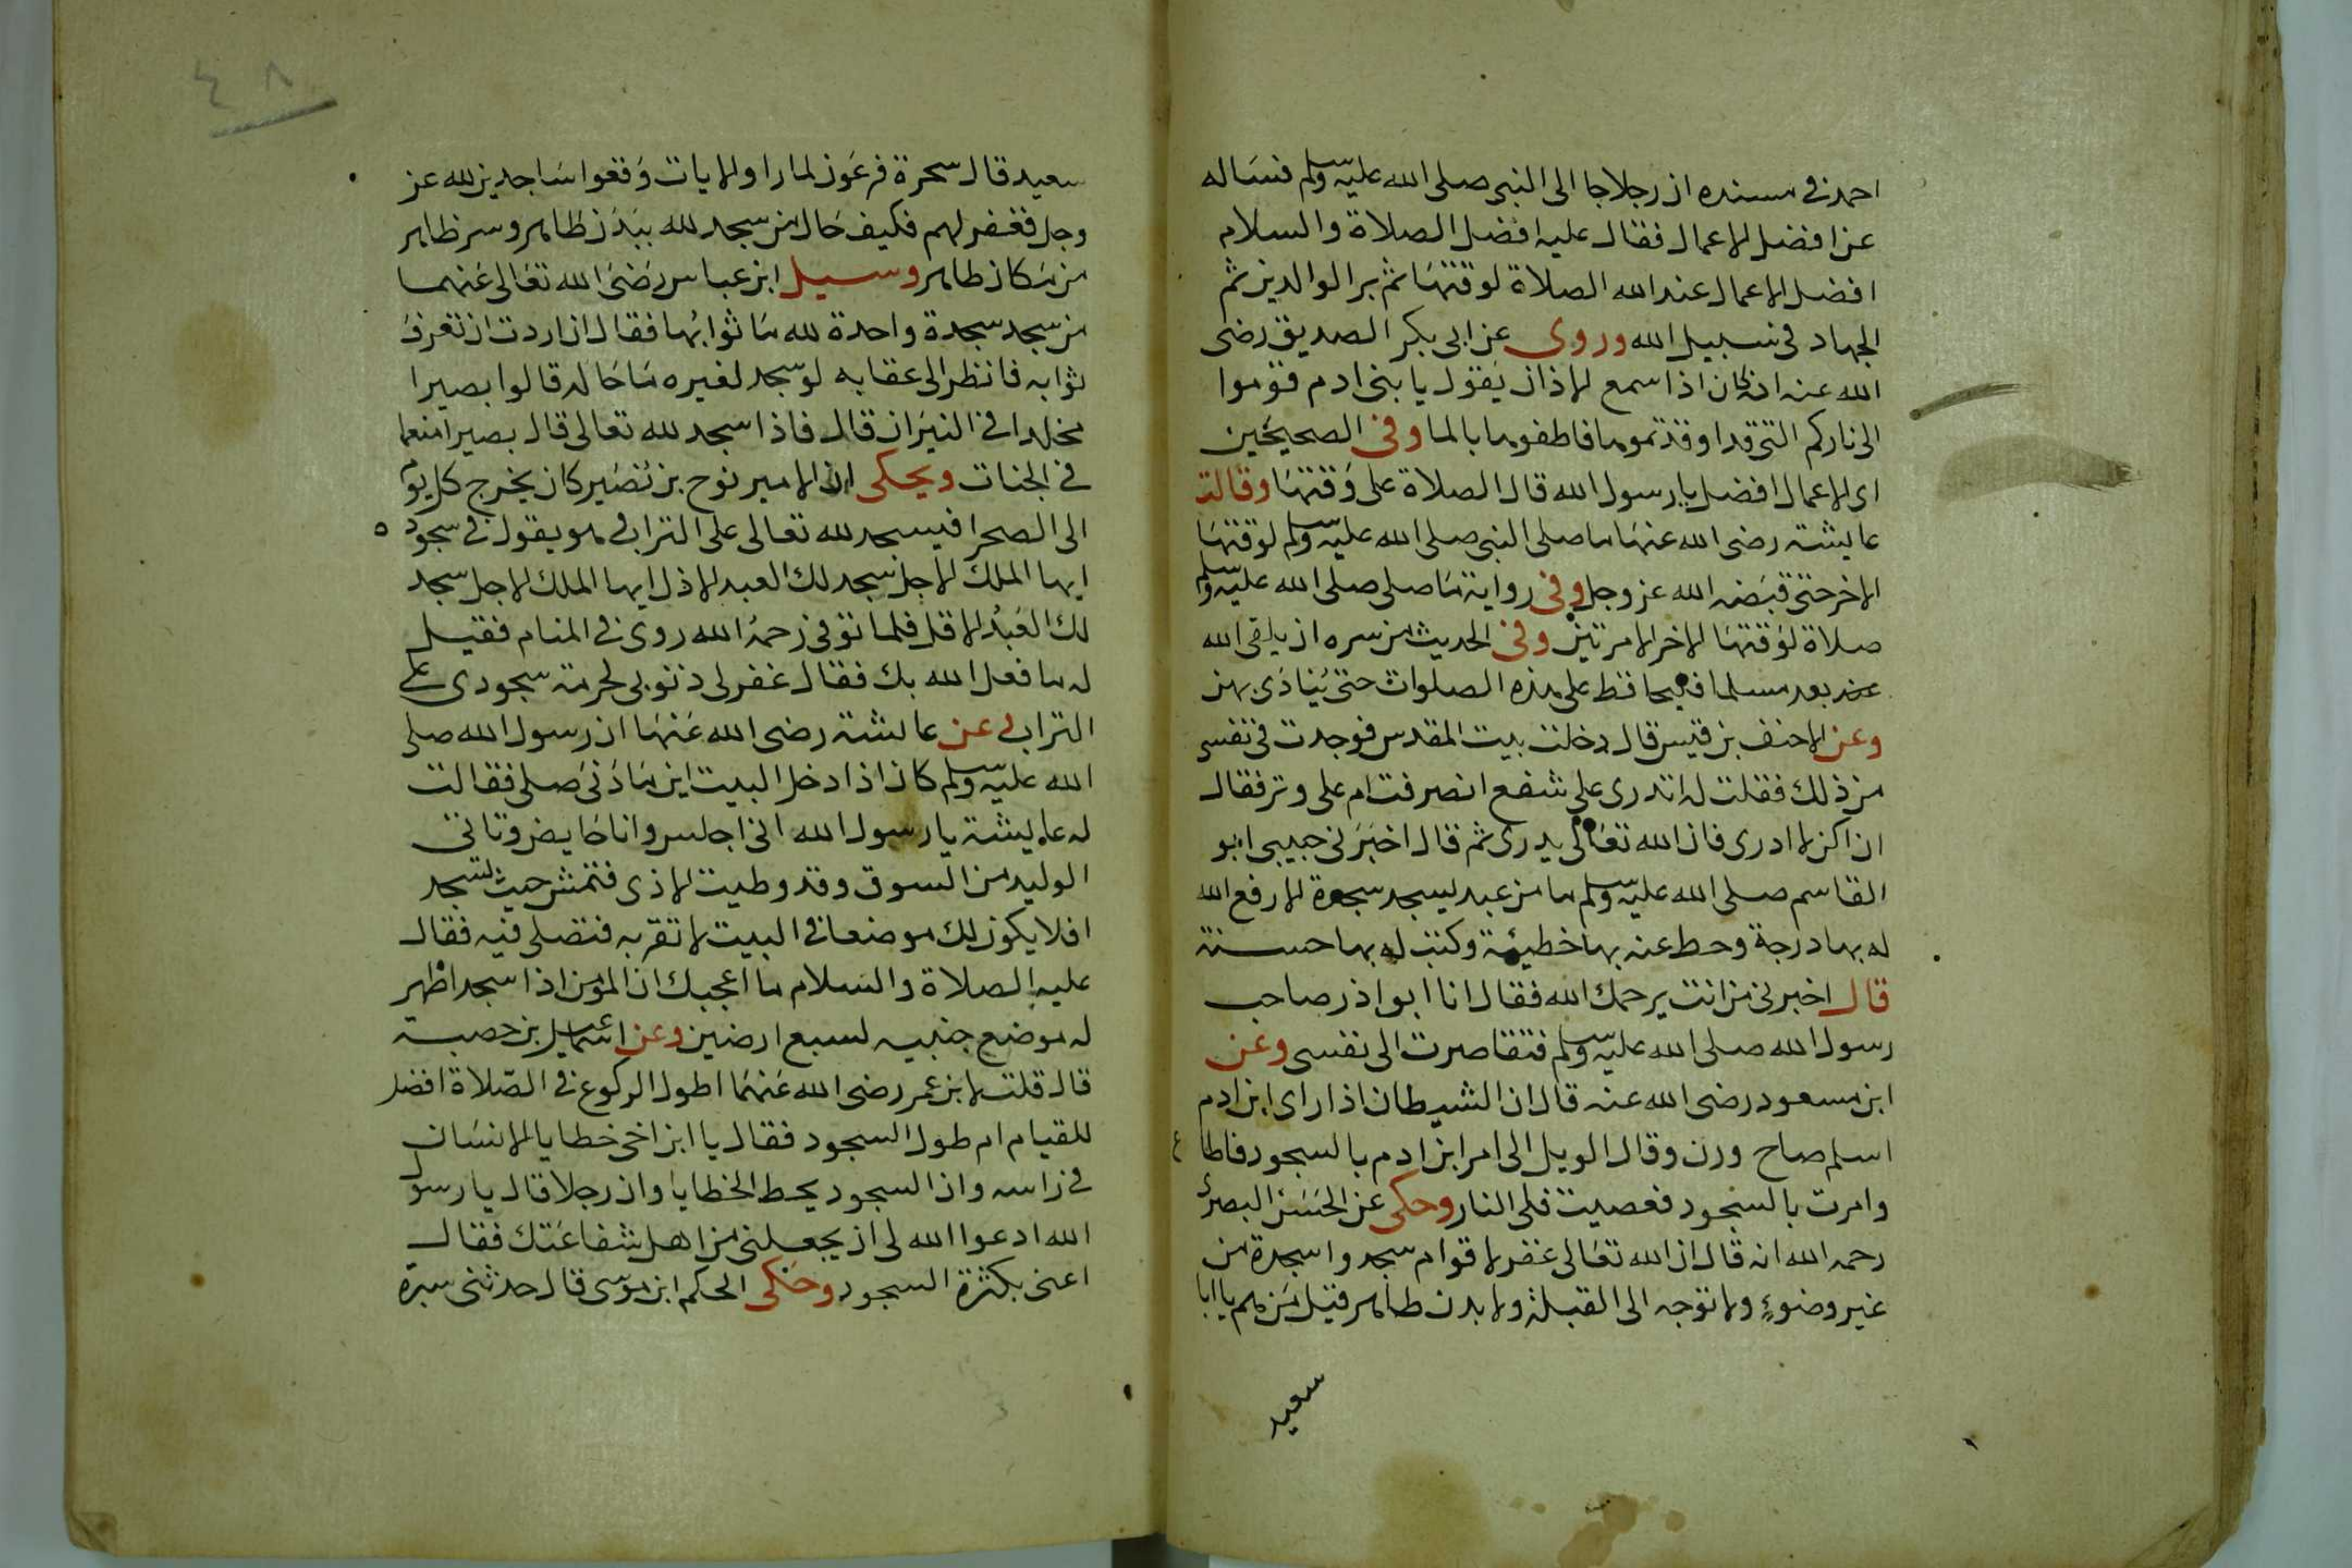 احمد في مسنده ان رجلا جا الى النبي صلى الله عليه وسلم فساله
عن افضل الاعمال فقال عليه افضل الصلاة والسلام
افضل الاعمال عند الله الصلاة لوقتها ثم بر الوالدين ثم
الجهاد في سبيل الله وروى عن ابي بكر الصديق رضي
الله عنه انه كان اذا سمع الاذان يقول يا بني ادم قوموا
الى ناركم التي قد اوقدتموها فاطفوها بالما وفي الصحيحين
اي الاعمال افضل يا رسول الله قال الصلاة على وقتها وقالت
عايشة رضي الله عنها ما صلى النبي صلى الله عليه وسلم لوقتها
الاخر حتى قبضه الله عز وجل وفي رواية ما صلى صلى الله عليه وسلم
صلاة لوقتها الاخر الا مرتين وفي الحديث من سره ان يلقى الله
بعد مسلما فليحافظ على هذه الصلوات حتى ينادى بهن
وعن الاحنف بن قيس قال دخلت بيت المقدس فوجدت في نفسي
من ذلك فقلت له اتدرى على شفع انصرفت ام على وتر فقال
ان اكن لا ادرى فان الله تعالى يدرى ثم قال اخبرني حبيبي ابو
القاسم صلى الله عليه وسلم ما من عبد يسجد سجدة الا رفع الله
له بها درجة وحط عنه بها خطيئة وكتب له بها حسنة
قال اخبرني من انت يرحمك الله فقال انا ابوا ذر صاحب
رسول الله صلى الله عليه وسلم فتقاصرت الى نفسي وعن
ابن مسعود رضي الله عنه قال ان الشيطان اذا راى ابن ادم
اسلم صاح ورن وقال الويل الى امر ابن ادم بالسجود فاطاع
وامرت بالسجود فعصيت فلى النار وحكى عن الحسن البصري
رحمه الله انه قال ان الله تعالى غفر لاقوام سجدوا سجدة من
غير وضوء ولا توجه الى القبلة ولا بدن طاهر قيل من هم يا ابا
سعيد
٤٨
سعيد قال سحرة فرعون لما راوا الايات وقعوا ساجدين لله عز
وجل فغفر لهم فكيف حال من سجد لله ببدن طاهر وسر طاهر
من مكان طاهر وسيل ابن عباس رضي الله تعالى عنهما
من سجد سجدة واحدة لله ما ثوابها فقال ان اردت ان تعرف
ثوابه فانظر الى عقابه لو سجد لغيره ما حاله قالوا يصير
مخلدا في النيران قال فاذا سجد لله تعالى قال يصير منعما
في الجنات ويحكى ان الامير نوح بن نصير كان يخرج كل يوم
الى الصحرا فيسجد لله تعالى على التراب وهو يقول في سجوده
ايها الملك الاجل سجد لك العبد الاذل ايها الملك الاجل سجد
لك العبد الاقل فلما توفي رحمه الله روى في المنام فقيل
له ما فعل الله بك فقال غفر لى ذنوبي لحرمة سجودى على
التراب وعن عائشة رضي الله عنها ان رسول الله صلى
الله عليه وسلم كان اذا دخل البيت اين ما دنى صلى فقالت
له عايشة يا رسول الله اني اجلس وانا حايض وتاتى
الوليد من السوق وقد وطيت الاذى فتمشى حيث تسجد
افلا يكون لك موضعا في البيت لا تقربه فتصلى فيه فقال
عليه الصلاة والسلام ما اعجبك ان المومن اذا سجد اظهر
له موضع جنبيه لسبع ارضين وعن اسماعيل بن حصبة
قال قلت لابن عمر رضي الله عنهما اطول الركوع في الصلاة افضل
للقيام ام طول السجود فقال يا ابن اخي خطايا الانسان
في راسه وان السجود يحط الخطايا وان رجلا قال يا رسول
الله ادعوا الله لى ان يجعلني من اهل شفاعتك فقال
اعني بكثرة السجود وحكى الحكم ابن موسى قال حدثني سبرة